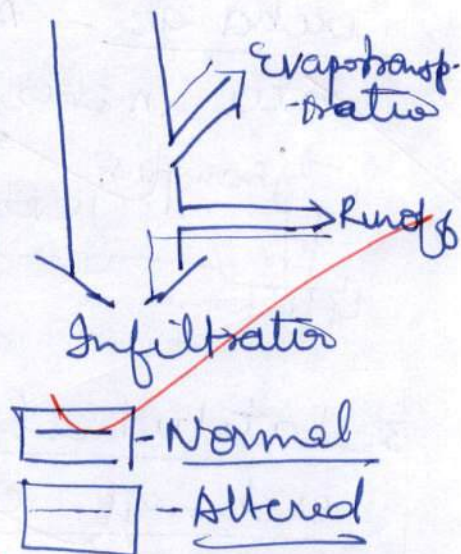 Evapotransp-
-iratio
Runoff
Infiltratio
- Normal
- Altered